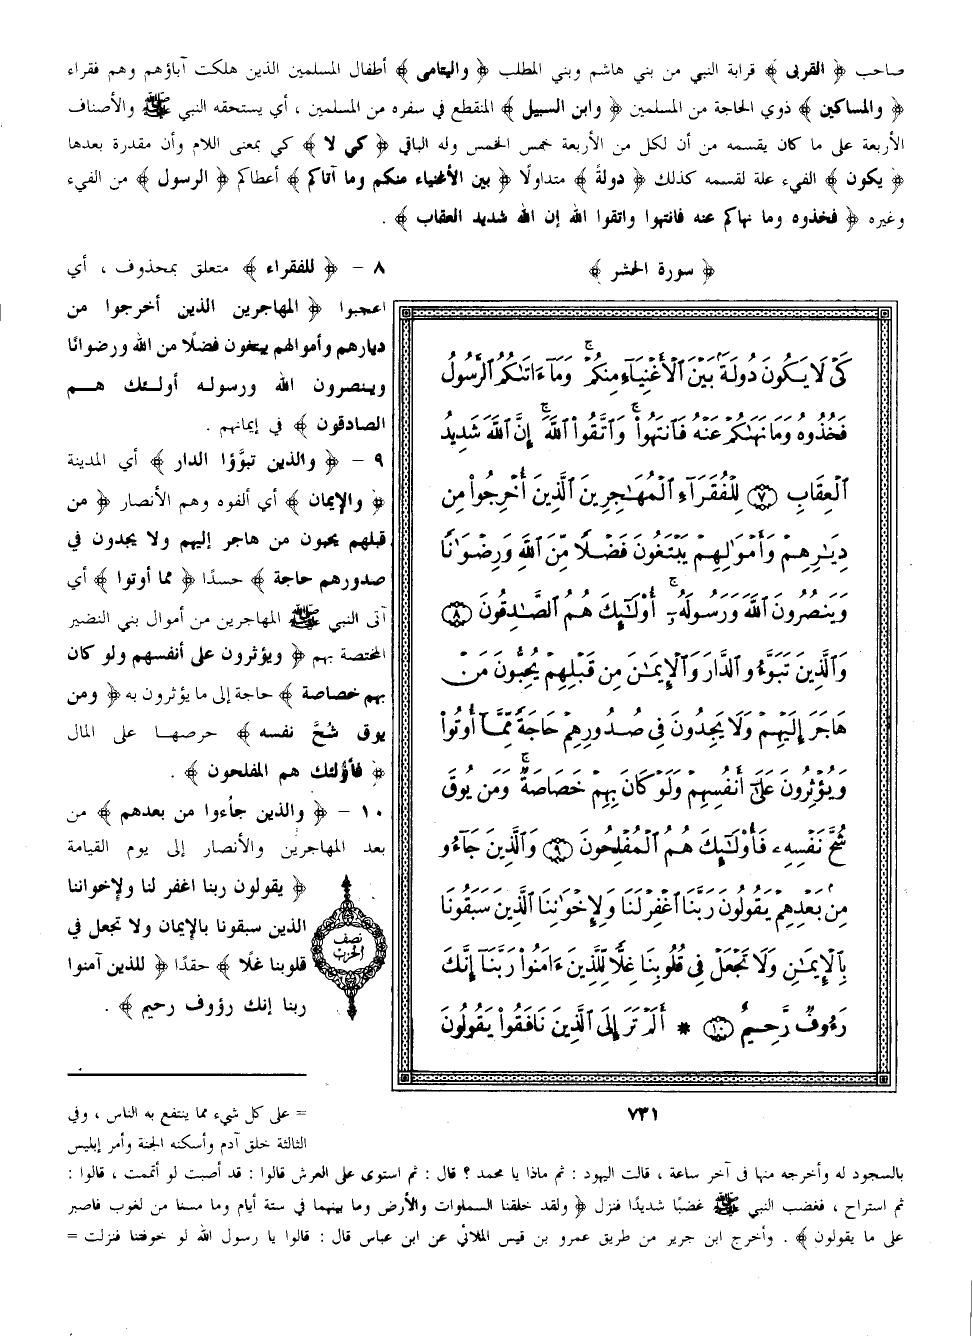 صاحب ﴿ القربى ﴾ قرابة النبي من بني هاشم وبني المطلب ﴿ واليتامى ﴾ أطفال المسلمين الذين هلكت آباؤهم وهم فقراء
﴿ والمساكين ﴾ ذوي الحاجة من المسلمين ﴿ وابن السبيل ﴾ المنقطع في سفره من المسلمين ، أي يستحقه النبي ﷺ والأصناف
الأربعة على ما كان يقسمه من أن لكل من الأربعة خمس الخمس وله الباقي ﴿ كي لا ﴾ كي بمعنى اللام وأن مقدرة بعدها
﴿ يكون ﴾ الفيء علة لقسمه كذلك ﴿ دولةً ﴾ متداولًا ﴿ بين الأغنياء منكم وما آتاكم ﴾ أعطاكم ﴿ الرسول ﴾ من الفيء
وغيره ﴿ فخذوه وما نهاكم عنه فانتهوا واتقوا الله إن الله شديد العقاب ﴾ .
﴿ سورة الحشر ﴾
كَىْ لَا يَكُونَ دُولَةًۢ بَيْنَ ٱلْأَغْنِيَآءِ مِنكُمْۚ وَمَآ ءَاتَىٰكُمُ ٱلرَّسُولُ
فَخُذُوهُ وَمَا نَهَىٰكُمْ عَنْهُ فَٱنتَهُوا۟ۚ وَٱتَّقُوا۟ ٱللَّهَۖ إِنَّ ٱللَّهَ شَدِيدُ
ٱلْعِقَابِ ﴿٧﴾ لِلْفُقَرَآءِ ٱلْمُهَٰجِرِينَ ٱلَّذِينَ أُخْرِجُوا۟ مِن
دِيَٰرِهِمْ وَأَمْوَٰلِهِمْ يَبْتَغُونَ فَضْلًا مِّنَ ٱللَّهِ وَرِضْوَٰنًا
وَيَنصُرُونَ ٱللَّهَ وَرَسُولَهُۥٓۚ أُو۟لَٰٓئِكَ هُمُ ٱلصَّٰدِقُونَ ﴿٨﴾
وَٱلَّذِينَ تَبَوَّءُو ٱلدَّارَ وَٱلْإِيمَٰنَ مِن قَبْلِهِمْ يُحِبُّونَ مَنْ
هَاجَرَ إِلَيْهِمْ وَلَا يَجِدُونَ فِى صُدُورِهِمْ حَاجَةً مِّمَّآ أُوتُوا۟
وَيُؤْثِرُونَ عَلَىٰٓ أَنفُسِهِمْ وَلَوْ كَانَ بِهِمْ خَصَاصَةٌۚ وَمَن يُوقَ
شُحَّ نَفْسِهِۦ فَأُو۟لَٰٓئِكَ هُمُ ٱلْمُفْلِحُونَ ﴿٩﴾ وَٱلَّذِينَ جَآءُو
مِنۢ بَعْدِهِمْ يَقُولُونَ رَبَّنَا ٱغْفِرْ لَنَا وَلِإِخْوَٰنِنَا ٱلَّذِينَ سَبَقُونَا
بِٱلْإِيمَٰنِ وَلَا تَجْعَلْ فِى قُلُوبِنَا غِلًّا لِّلَّذِينَ ءَامَنُوا۟ رَبَّنَآ إِنَّكَ
رَءُوفٌ رَّحِيمٌ ﴿١٠﴾ * أَلَمْ تَرَ إِلَى ٱلَّذِينَ نَافَقُوا۟ يَقُولُونَ
٧٣١
٨ – ﴿ للفقراء ﴾ متعلق بمحذوف ، أي
اعجبوا ﴿ المهاجرين الذين أخرجوا من
ديارهم وأموالهم يبتغون فضلًا من الله ورضوانًا
وينصرون الله ورسوله أولئك هم
الصادقون ﴾ في إيمانهم .
٩ – ﴿ والذين تبوَّؤا الدار ﴾ أي المدينة
﴿ والإيمان ﴾ أي ألفوه وهم الأنصار ﴿ من
قبلهم يحبون من هاجر إليهم ولا يجدون في
صدورهم حاجة ﴾ حسدًا ﴿ مما أوتوا ﴾ أي
آتى النبي ﷺ المهاجرين من أموال بني النضير
المختصة بهم ﴿ ويؤثرون على أنفسهم ولو كان
بهم خصاصة ﴾ حاجة إلى ما يؤثرون به ﴿ ومن
يوق شُحَّ نفسه ﴾ حرصها على المال
﴿ فأولئك هم المفلحون ﴾ .
١٠ – ﴿ والذين جاءوا من بعدهم ﴾ من
بعد المهاجرين والأنصار إلى يوم القيامة
﴿ يقولون ربنا اغفر لنا ولإخواننا
الذين سبقونا بالإيمان ولا تجعل في
قلوبنا غلًا ﴾ حقدًا ﴿ للذين آمنوا
ربنا إنك رؤوف رحيم ﴾ .
نصف
الحزب
= على كل شيء مما ينتفع به الناس ، وفي
الثالثة خلق آدم وأسكنه الجنة وأمر إبليس
بالسجود له وأخرجه منها في آخر ساعة ، قالت اليهود : ثم ماذا يا محمد ؟ قال : ثم استوى على العرش قالوا : قد أصبت لو أتممت ، قالوا :
ثم استراح ، فغضب النبي ﷺ غضبًا شديدًا فنزل ﴿ ولقد خلقنا السماوات والأرض وما بينهما في ستة أيام وما مسنا من لغوب فاصبر
على ما يقولون ﴾ . وأخرج ابن جرير من طريق عمرو بن قيس الملائي عن ابن عباس قال : قالوا يا رسول الله لو خوفتنا فنزلت =